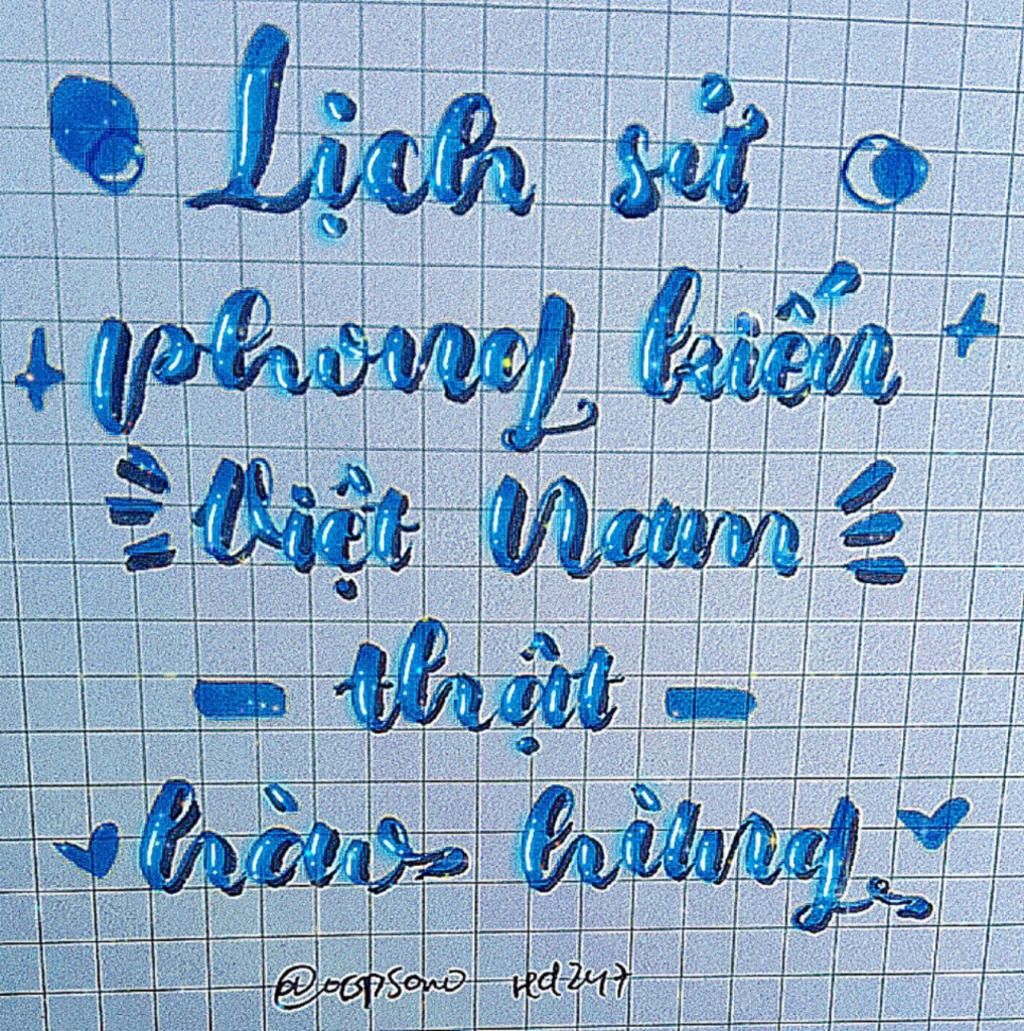 Lịch sử
phong kiến
Việt Nam
thật
hào hùng
red247